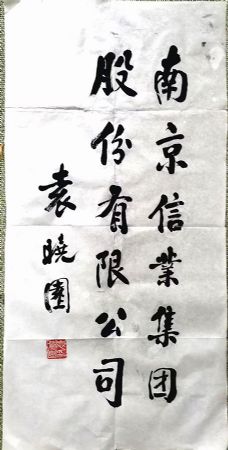 南京信業集团
股份有限公司
袁曉園